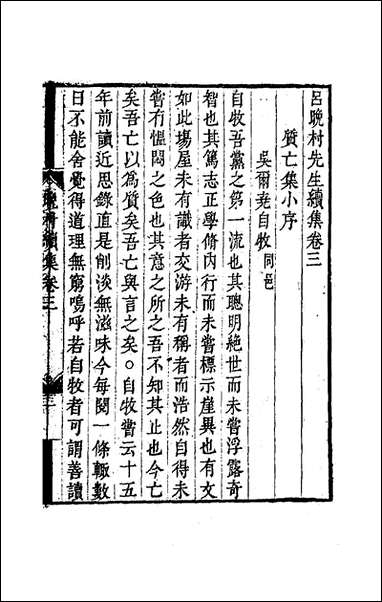 呂晚村先生續集卷三
質亡集小序
吳爾堯自牧同邑
自牧吾黨之第一流也其聰明絕世而未嘗浮露奇
智也其篤志正學脩內行而未嘗標示崖異也有文
如此場屋未有識者交游未有稱者而浩然自得未
嘗有慍悶之色也其意之所之吾不知其止也今亡
矣吾亡以為質矣吾亡與言之矣○自牧嘗云十五
年前讀近思錄直是削淡無滋味今每閱一條輒數
日不能舍覺得道理無窮嗚呼若自牧者可謂善讀
晚村續集卷三